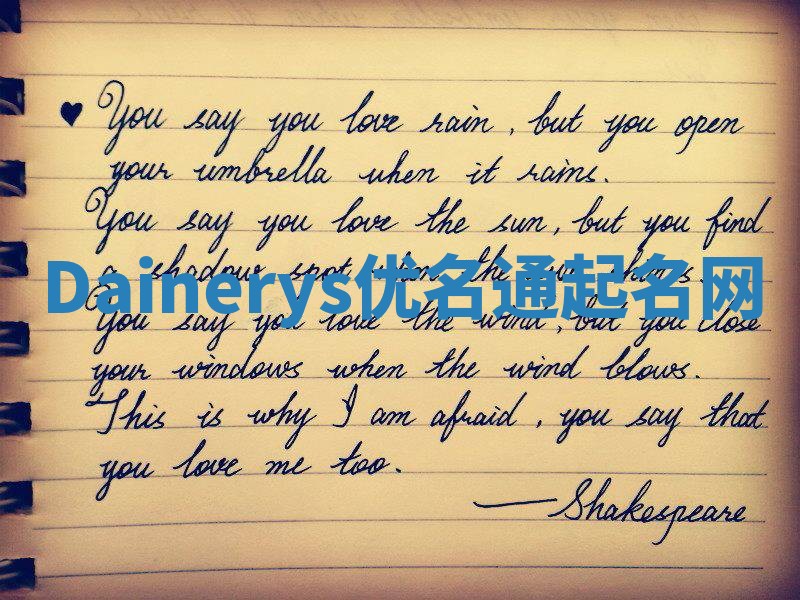 ♥ You say you love rain, but you open
your umbrella when it rains.
You say you love the sun, but you find
a shadow spot when the sun shines.
Dainerys优名通起名网
You say you love the wind, but you close
your windows when the wind blows.
This is why I am afraid, you say that
you love me too.
—Shakespeare